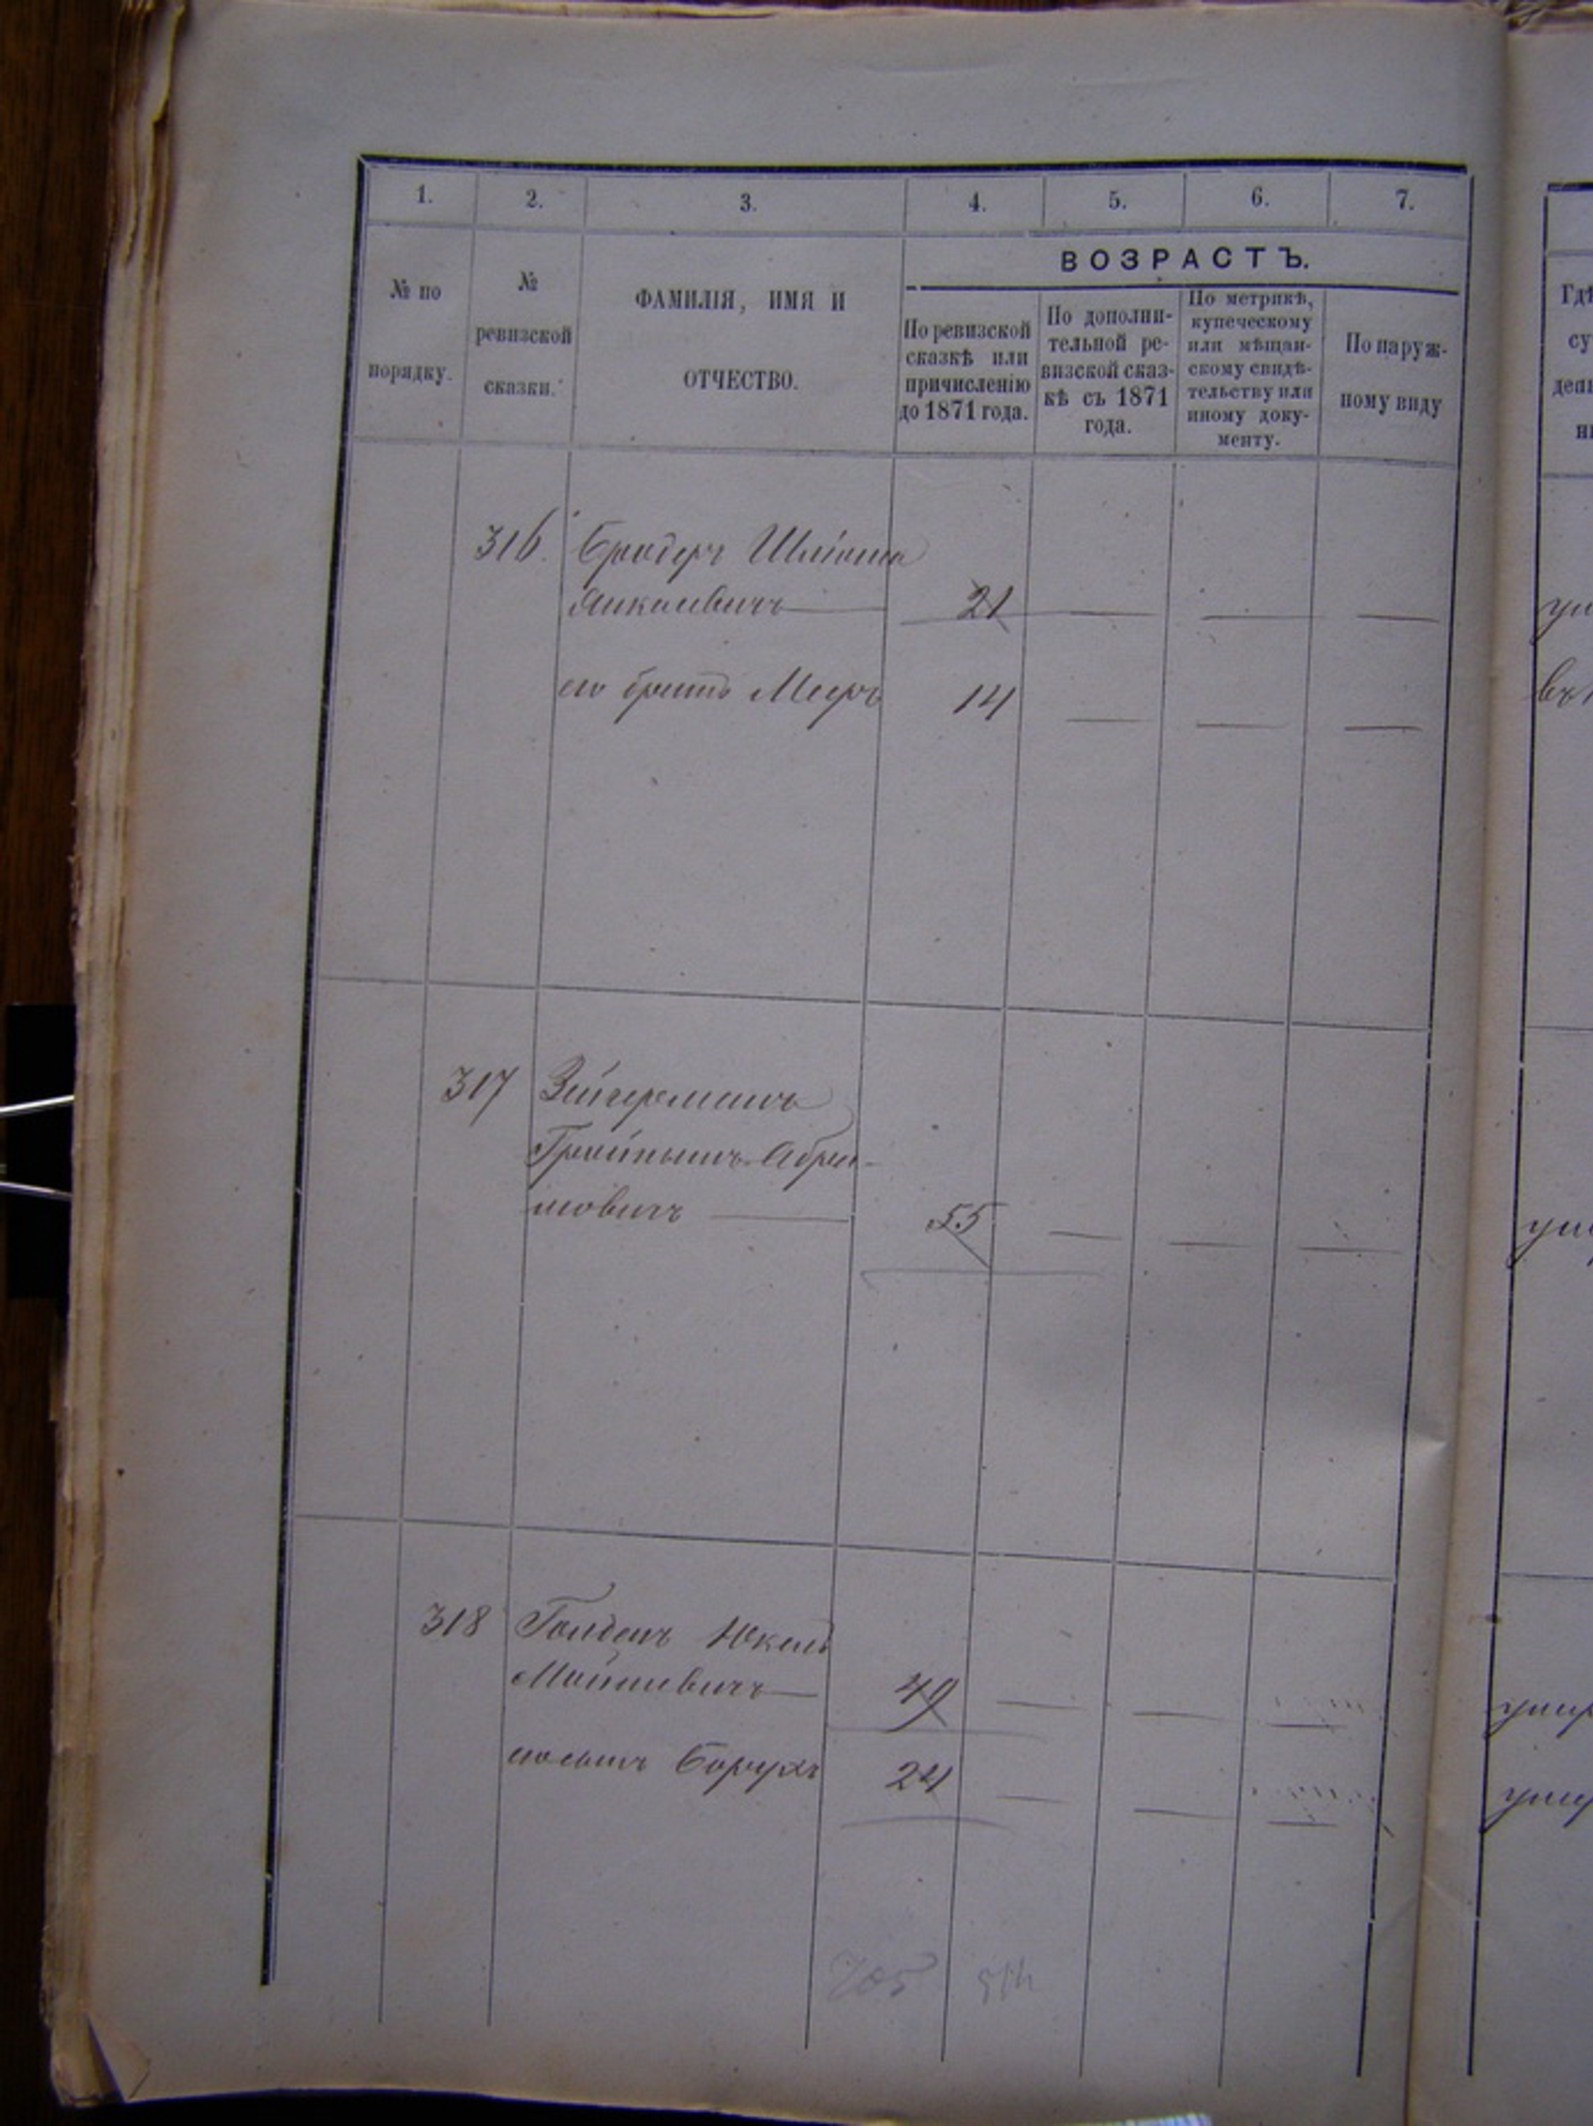 1. 2. 3. 4. 5. 6. 7.
№ по
порядку.
№
ревизской
сказки.
ФАМИЛІЯ, ИМЯ И
ОТЧЕСТВО.
ВОЗРАСТЪ.
По ревизской
сказкѣ или
причисленію
до 1871 года.
По дополни-
тельной ре-
визской сказ-
кѣ съ 1871
года.
По метрикѣ,
купеческому
или мѣщан-
скому свидѣ-
тельству или
иному доку-
менту.
По наруж-
ному виду
316. Бродеръ Шліома
Янкелевичъ — 21 — — —
его братъ Мееръ 14 — — —
317 Зейгерманъ
Абра-
мовичъ — 55 — — —
318 Голденъ Юкель
Мошковичъ — 49 — — —
его сынъ Борухъ 24 — — —
705